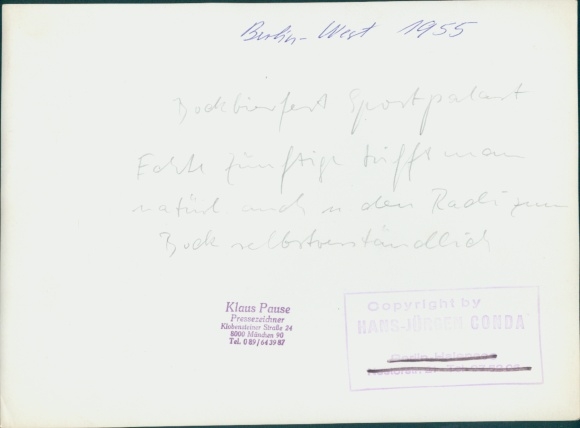 Berlin-West 1955
Bockbierfest Sportpalast
Echte zünftige trifft man
natürl auch u den Radi zum
Bock selbstverständlich
Klaus Pause
Pressezeichner
Klobensteiner Straße 24
8000 München 90
Tel. 0 89/64 39 87
Copyright by
HANS-JÜRGEN CONDA
Berlin-Halensee